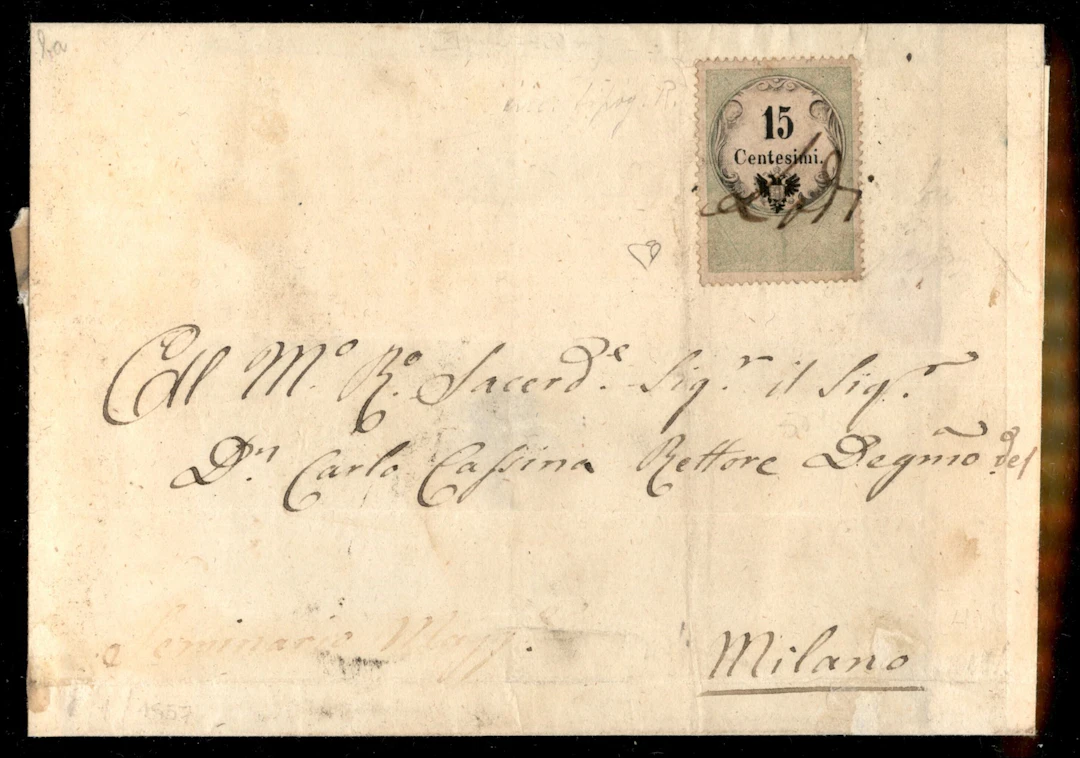 15
Centesimi.
All M.º R.º Sacerd.e Sig.r il Sig.r
D.n Carlo Cassina Rettore Degmo del
Seminario Magg.e
Milano
1857